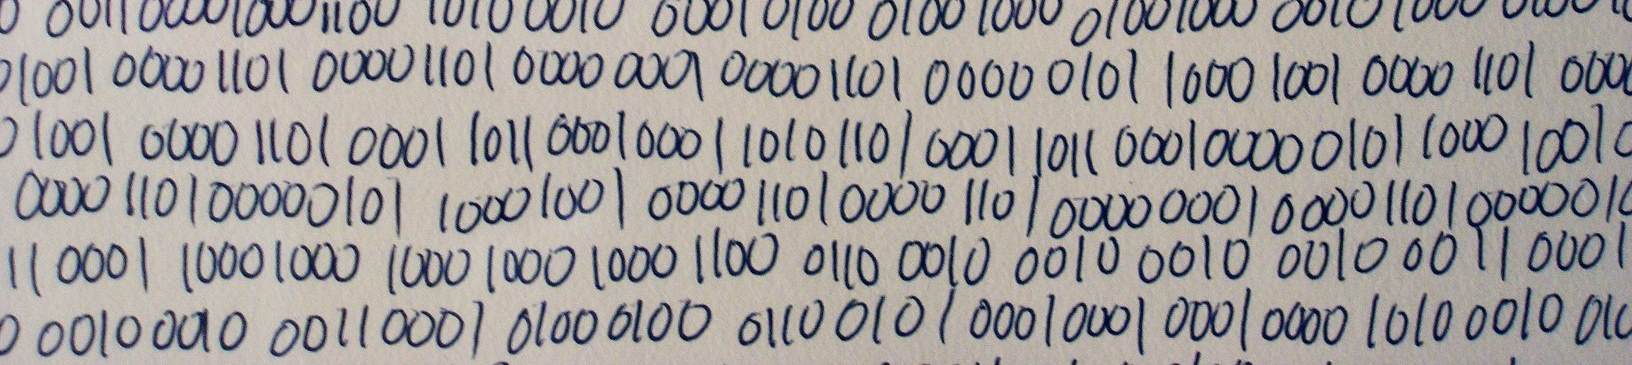 0 0011000010001100 10100010 00010100 01001000 01001000 00101000
01001 00001101 00001101 00000001 00001101 00000101 10001001 00001101 000
01001 00001101 00011011 00010001 10101101 00011011 00010000 00101 1000 10010
00001101 00000101 10001001 00001101 00001101 00000001 00001101 0000010
110001 10001000 1000 1000 1000 1100 0110 0010 0010 0010 0010 0011 0001
0 00100010 00110001 01000100 01100101 00010001 00010000 10100010 010